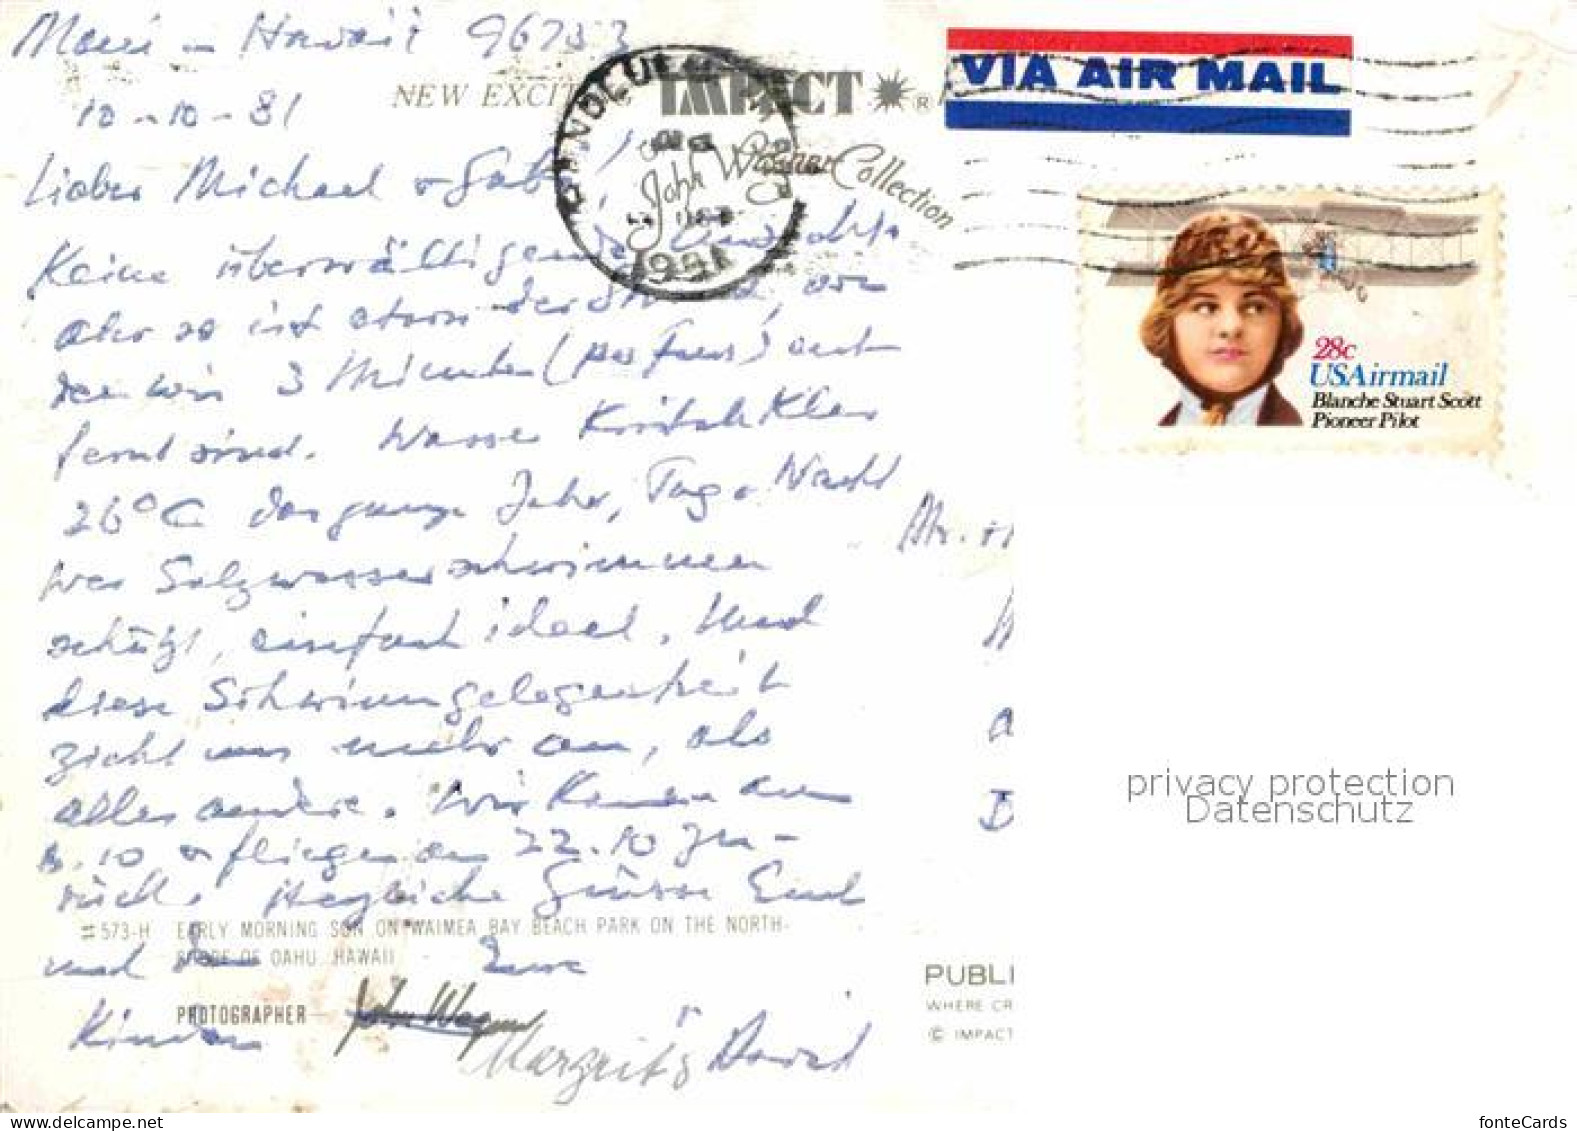 Maui - Hawaii 96753
10-10-81
NEW EXCITING IMPACT ® 
VIA AIR MAIL
John Wagner Collection
HONOLULU
1981
Lieber Michael + Gabi,
Keine überwältigende
aber so ist etwa der Strand, von
dem wir 3 Minuten (per fuss) ent
fernt sind. Wasser Kristallklar
26°C das ganze Jahr, Tag + Nacht
wer Salzwasserschwimmen
schätzt, einfach ideal. Und
diese Schwimmgelegenheit
zieht uns mehr an, als
alles andere. Wir kamen am
10 + fliegen am 22.10 zu-
rück. Herzliche Grüsse Euch
und Eure
Kindern
Margrit & David
28c
USAirmail
Blanche Stuart Scott
Pioneer Pilot
#573-H EARLY MORNING SUN ON WAIMEA BAY BEACH PARK ON THE NORTH-
SHORE OF OAHU, HAWAII
PHOTOGRAPHER John Wagner
PUBLI
WHERE CR
© IMPACT
privacy protection
Datenschutz
delcampe.net
fonteCards